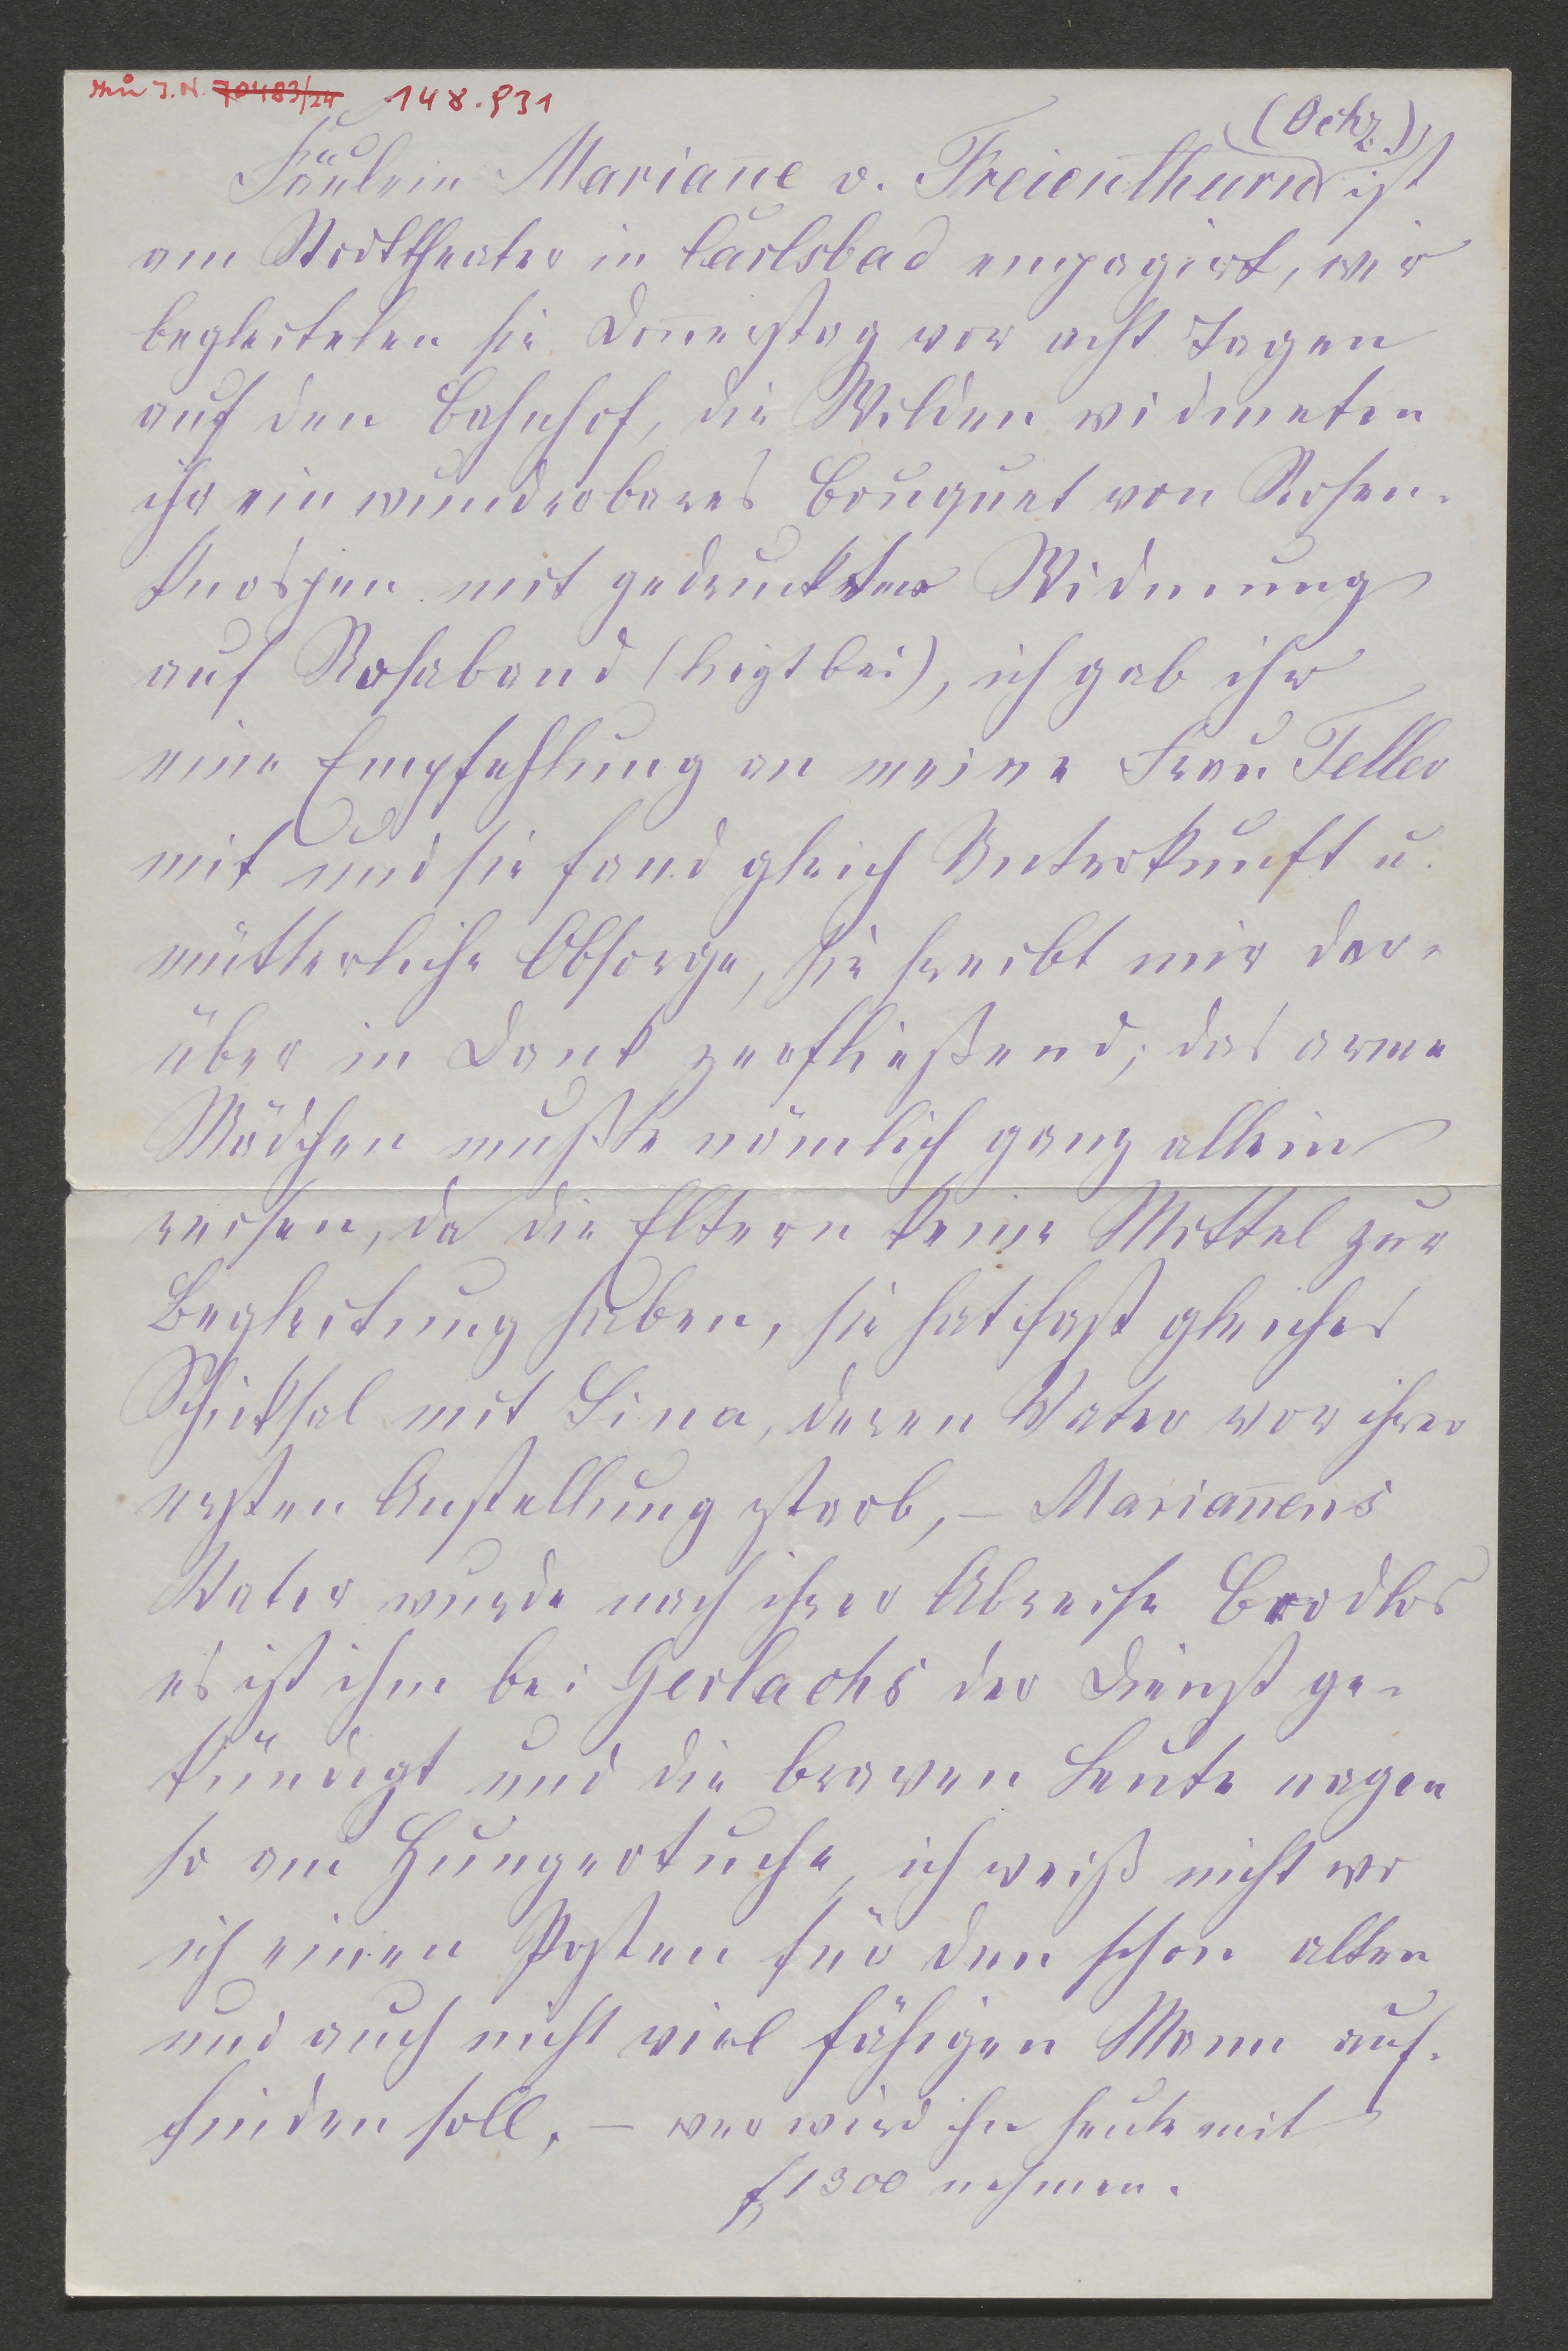 J.N. 70483/24 148.931
(Ochz.)
Fräulein Mariane v. Freienthurn ist
am Stadttheater in Carlsbad engagirt, wir
begleiteten sie Donnerstag vor acht Tagen
auf den Bahnhof, die Wilden widmeten
ihr ein wunderbares Bouquet von Rosen-
knospen mit gedruckter Widmung
auf Rosaband (liegt bei), ich gab ihr
eine Empfehlung an meine Frau Teller
mit und sie fand gleich Unterkunft u.
mütterliche Obsorge, sie schreibt mir dar-
über in Dank zerfließend; das arme
Mädchen mußte nämlich ganz allein
reisen, da die Eltern keine Mittel zur
Begleitung haben, sie hat fast gleiches
Schicksal mit Lina, deren Vater vor ihrer
ersten Anstellung starb, – Marianens
Vater wurde nach ihrer Abreise Brodlos
es ist ihm bei Gerlachs der Dienst ge-
kündigt und die braven Leute nagen
so am Hungertuche, ich weiß nicht wo
ich einen Posten für den schon alten
und auch nicht viel fähigen Mann auf-
finden soll, – wer wird ihn heute mit
f 1300 nehmen.